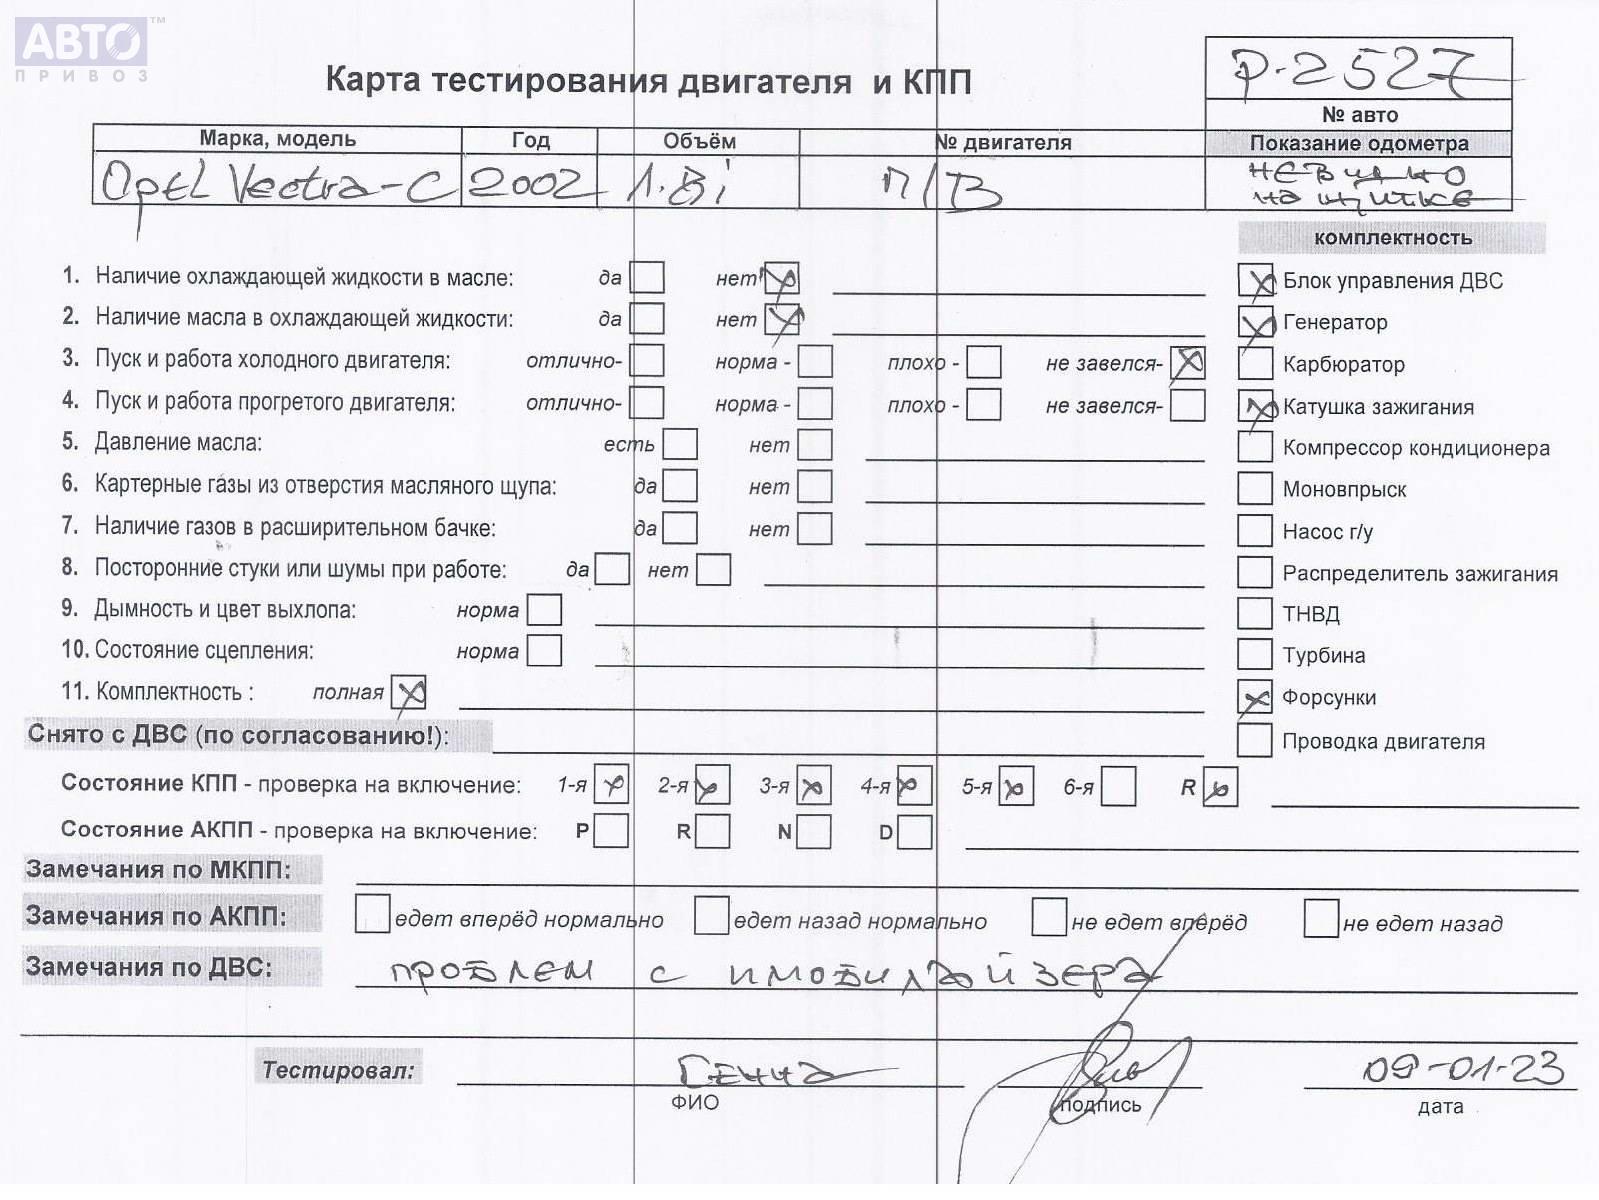 АВТО™
ПРИВОЗ
Карта тестирования двигателя и КПП
P-2527
№ авто
Марка, модель Год Объём № двигателя Показание одометра
Opel Vectra-C 2002 1.8i П/В НЕ ВИДНО
НА ЩИТКЕ
комплектность
1. Наличие охлаждающей жидкости в масле: да нет
2. Наличие масла в охлаждающей жидкости: да нет
3. Пуск и работа холодного двигателя: отлично- норма - плохо - не завелся-
4. Пуск и работа прогретого двигателя: отлично- норма - плохо - не завелся-
5. Давление масла: есть нет
6. Картерные газы из отверстия масляного щупа: да нет
7. Наличие газов в расширительном бачке: да нет
8. Посторонние стуки или шумы при работе: да нет
9. Дымность и цвет выхлопа: норма
10. Состояние сцепления: норма
11. Комплектность : полная
Блок управления ДВС
Генератор
Карбюратор
Катушка зажигания
Компрессор кондиционера
Моновпрыск
Насос г/у
Распределитель зажигания
ТНВД
Турбина
Форсунки
Проводка двигателя
Снято с ДВС (по согласованию!):
Состояние КПП - проверка на включение: 1-я 2-я 3-я 4-я 5-я 6-я R
Состояние АКПП - проверка на включение: P R N D
Замечания по МКПП:
Замечания по АКПП: едет вперёд нормально едет назад нормально не едет вперёд не едет назад
Замечания по ДВС: ПРОБЛЕМ С ИМОБИЛАЙЗЕРА
Тестировал: Генна 09-01-23
ФИО подпись дата